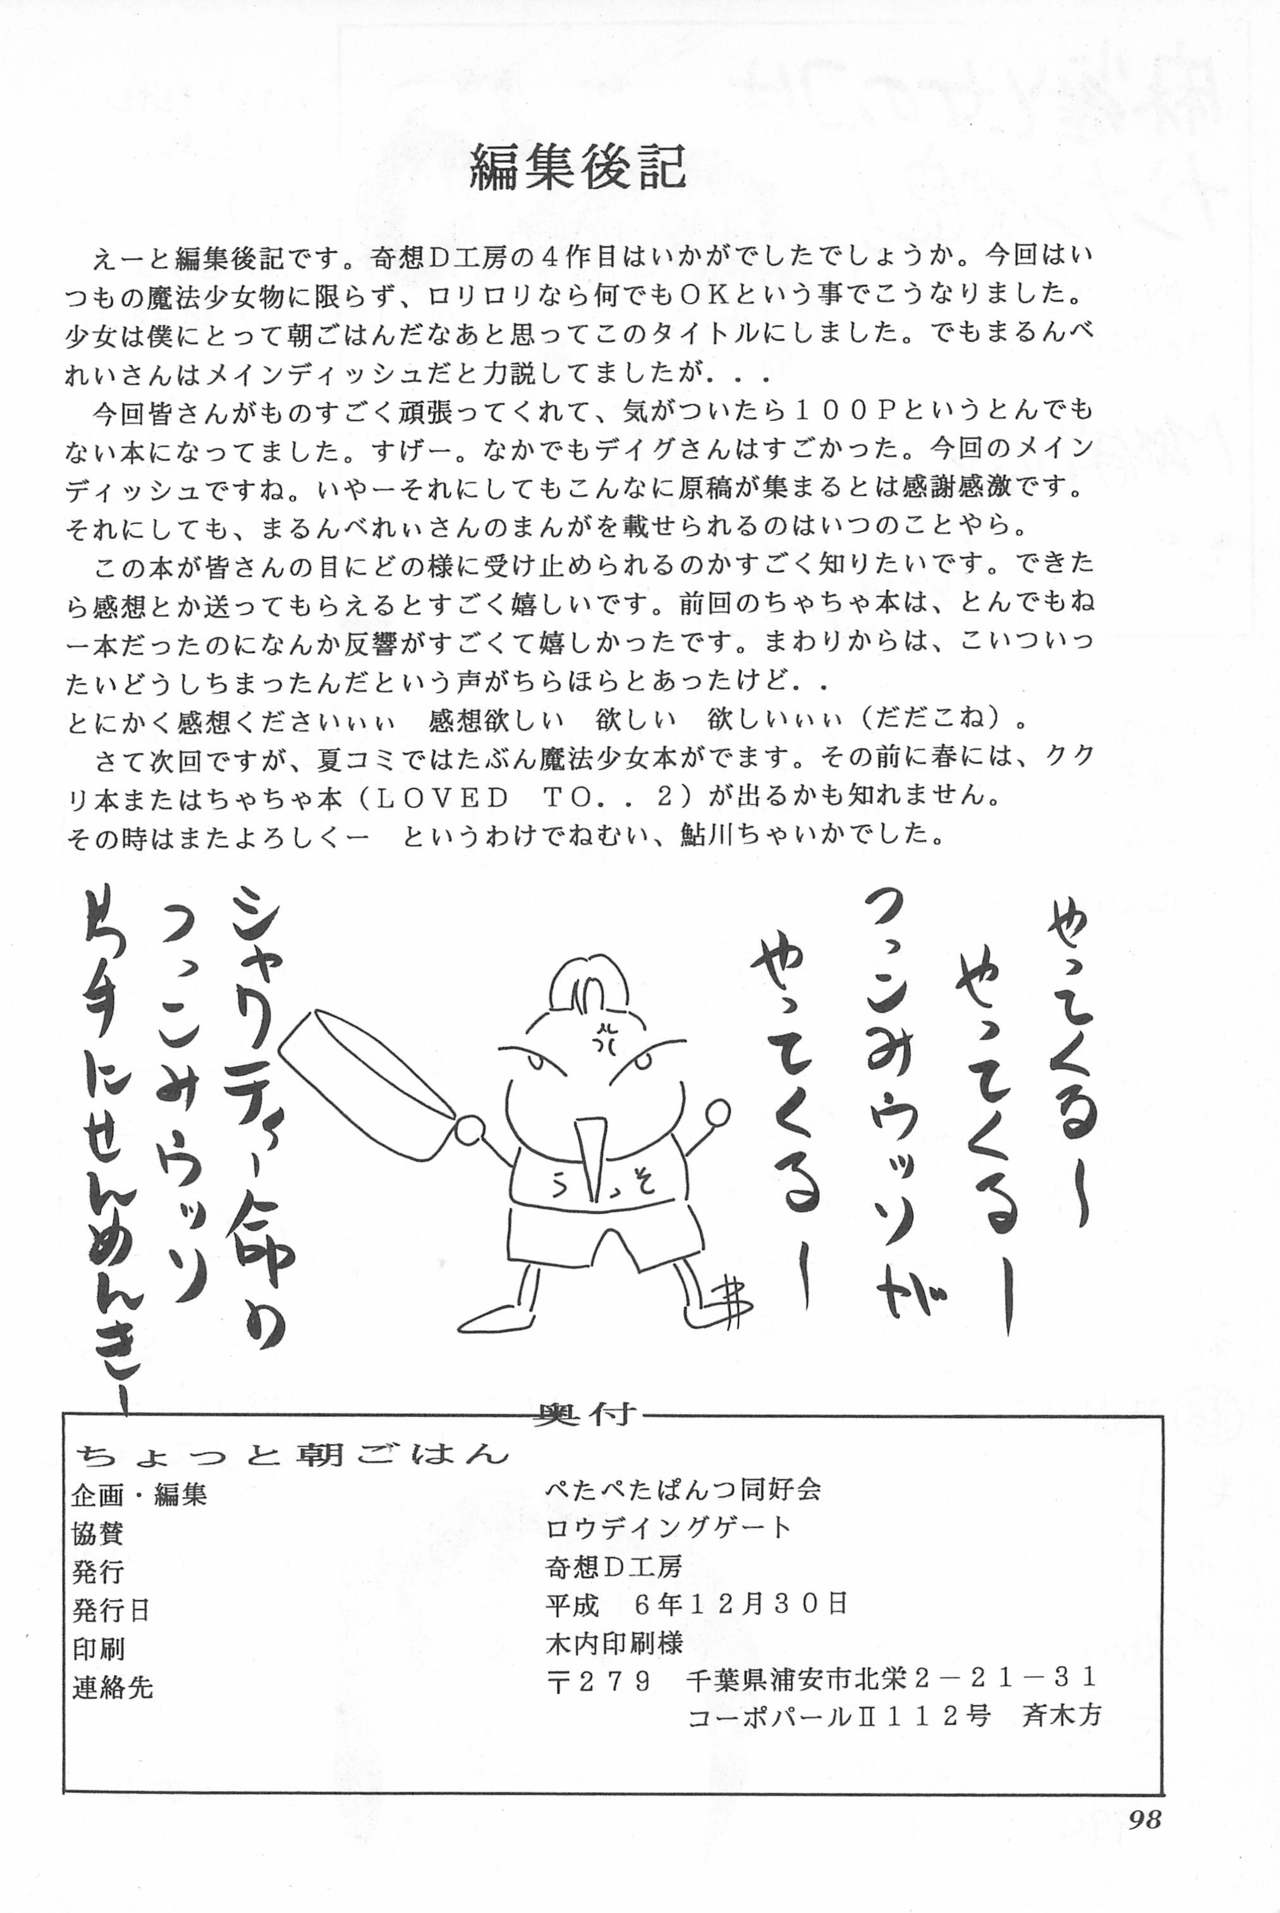 編集後記
　えーと編集後記です。奇想Ｄ工房の４作目はいかがでしたでしょうか。今回はい
つもの魔法少女物に限らず、ロリロリなら何でもＯＫという事でこうなりました。
少女は僕にとって朝ごはんだなあと思ってこのタイトルにしました。でもまるんべ
れいさんはメインディッシュだと力説してましたが．．．
　今回皆さんがものすごく頑張ってくれて、気がついたら１００Ｐというとんでも
ない本になってました。すげー。なかでもデイグさんはすごかった。今回のメイン
ディッシュですね。いやーそれにしてもこんなに原稿が集まるとは感謝感激です。
それにしても、まるんべれぃさんのまんがを載せられるのはいつのことやら。
　この本が皆さんの目にどの様に受け止められるのかすごく知りたいです。できた
ら感想とか送ってもらえるとすごく嬉しいです。前回のちゃちゃ本は、とんでもね
ー本だったのになんか反響がすごくて嬉しかったです。まわりからは、こいついっ
たいどうしちまったんだという声がちらほらとあったけど．．
とにかく感想くださいぃぃ　感想欲しい　欲しい　欲しいぃぃ（だだこね）。
　さて次回ですが、夏コミではたぶん魔法少女本がでます。その前に春には、クク
リ本またはちゃちゃ本（ＬＯＶＥＤ　ＴＯ．．２）が出るかも知れません。
その時はまたよろしくー　というわけでねむい、鮎川ちゃいかでした。
やってくる〜
やってくるー
つっこみウッソが
やってくるー
うっそ
シャクティー命の
つっこみウッソ
片手にせんめんきー
奥付
ちょっと朝ごはん
企画・編集　ぺたぺたぱんつ同好会
協賛　ロウデイングゲート
発行　奇想Ｄ工房
発行日　平成　６年１２月３０日
印刷　木内印刷様
連絡先　〒２７９　千葉県浦安市北栄２－２１－３１
コーポパールⅡ１１２号　斉木方
98